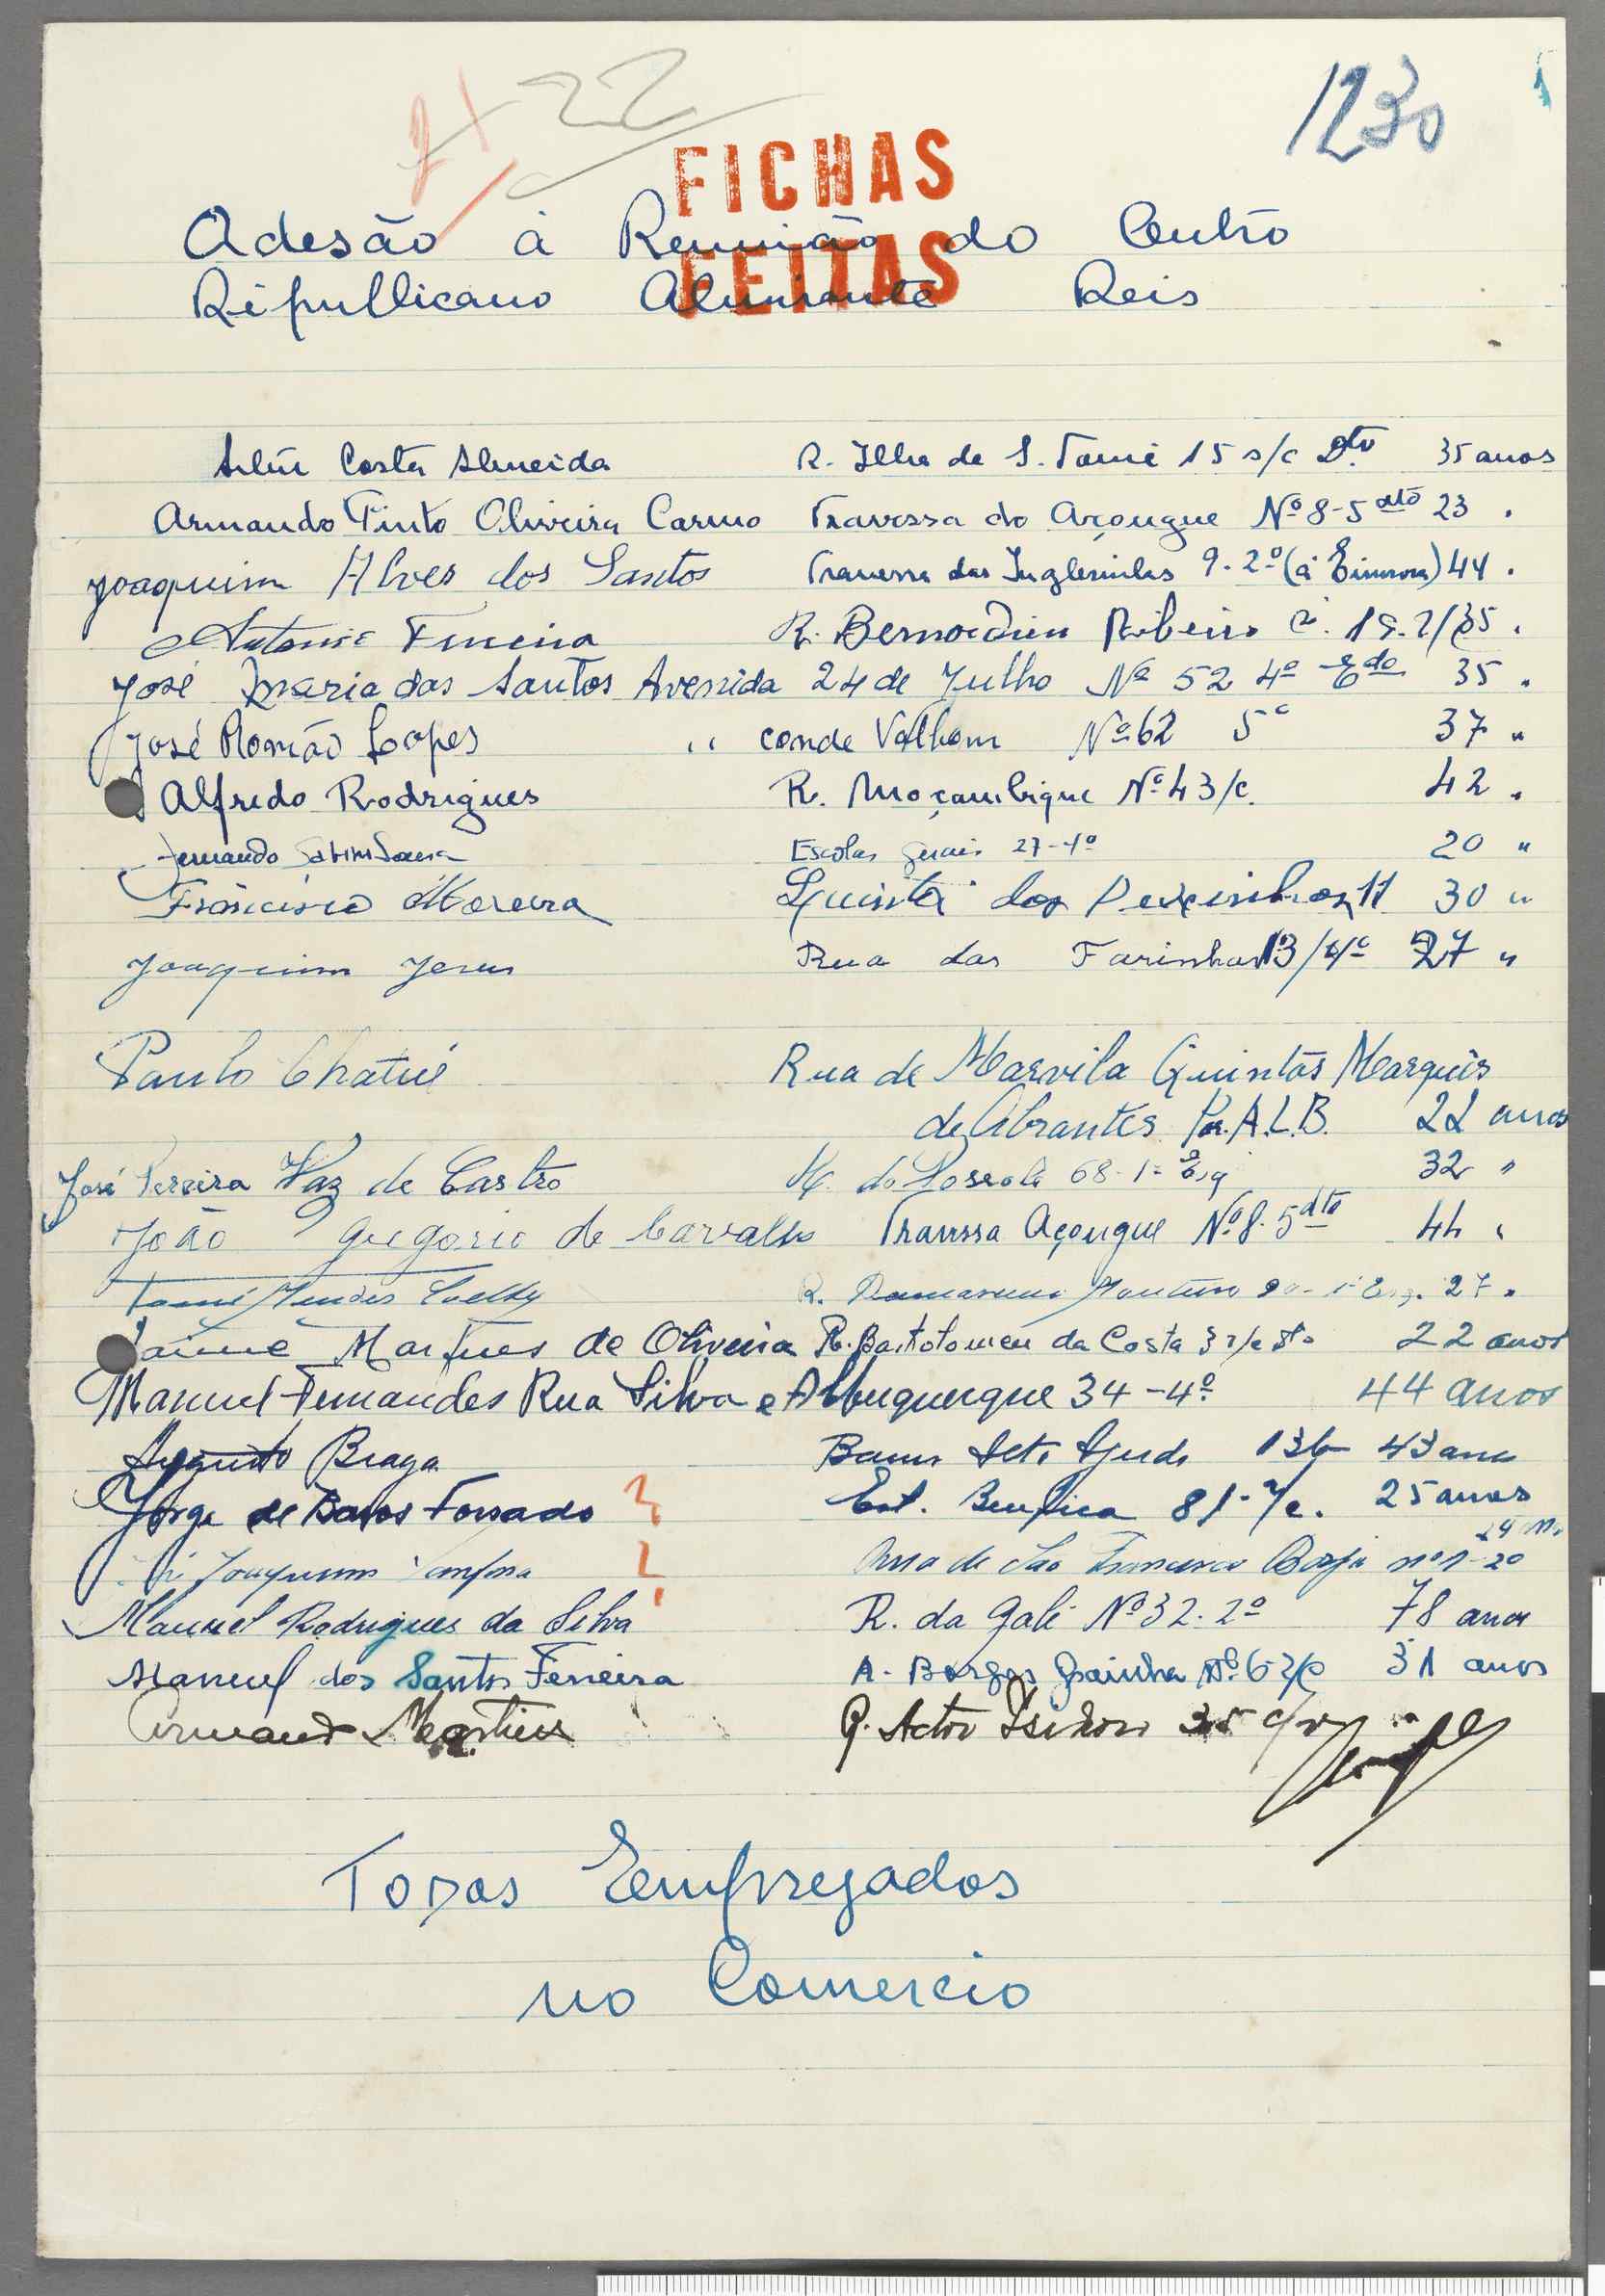 22
1230
1
FICHAS
FEITAS
Adesão á Reunião do Centro
Républicano Almirante Reis
Costa Almeida R. Ilha de S. Tomé 15 s/c Dto 35 anos
Armando Pinto Oliveira Carmo Travessa do Açougue Nº 8-5 dto 23 "
Joaquim Alves dos Santos Travessa das Inglesinhas 9-2º 44 "
Antonio Ferreira R. Bernardim Ribeiro 35 "
José Maria dos Santos Avenida 24 de Julho Nº 52 4º Edo 35 "
José Romão Lopes " conde Valbom Nº 62 5º 37 "
Alfredo Rodrigues R. Moçambique Nº 43/c. 42 "
Fernando Sousa Escolas Gerais 27-4º 20 "
Francisco Moreira Quinta dos Peixinhos 11 30 "
Joaquim Jesus Rua das Farinhas 13/4º 27 "
Paulo Rua de Marvila Quintas Marquês
de Abrantes A.L.B. 22 anos
José Pereira Vaz de Castro 68-1º Esq 32 "
João Gregorio de Carvalho Açougue Nº 8-5 dto 44 "
Tomé Mendes R. Monteiro 27 "
Jaime Martins de Oliveira R. Bartolomeu da Costa 3 r/c 22 anos
Manuel Fernandes Rua Silva e Albuquerque 34-4º 44 anos
Augusto Braga Ajuda 43 anos
Jorge de Barros Est. Benfica 81-r/c. 25 anos
Joaquim de São Francisco Borja nº 1-2º
Manuel Rodrigues da Silva R. da Galé Nº 32-2º 78 anos
Manuel dos Santos Ferreira A. Borges Grainha Nº 6 31 anos
Armando Martins R. Actor Isidoro c/v
Todos Empregados
no Comercio